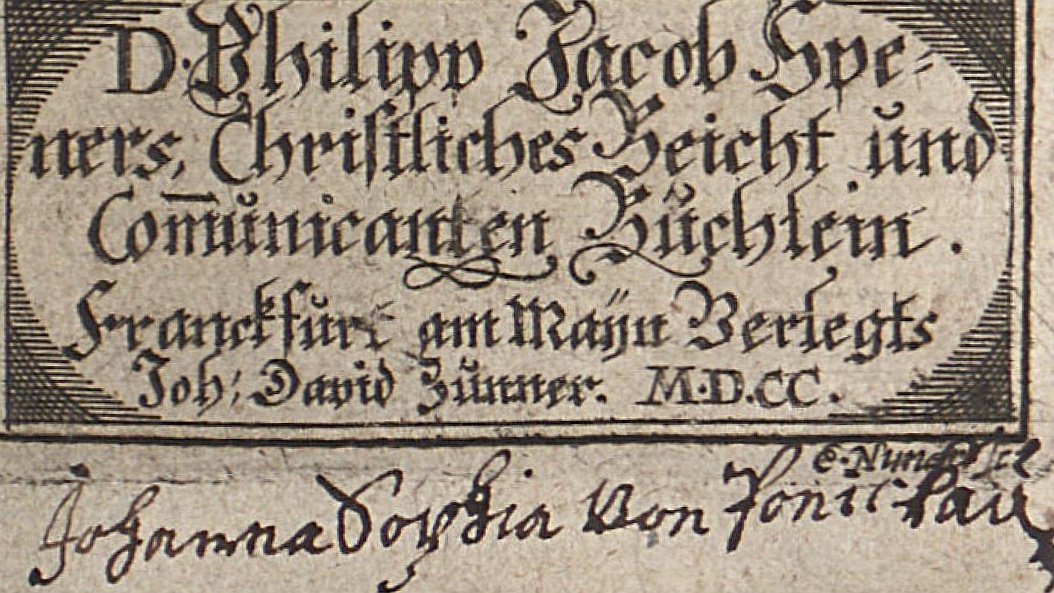 D. Philipp Jacob Spe-
ners, Christliches Beicht und
Com̄unicanten Büchlein.
Franckfurt am Maÿn Verlegts
Joh: David Zunner. M.D.CC.
Johanna Sophia von Ponickau